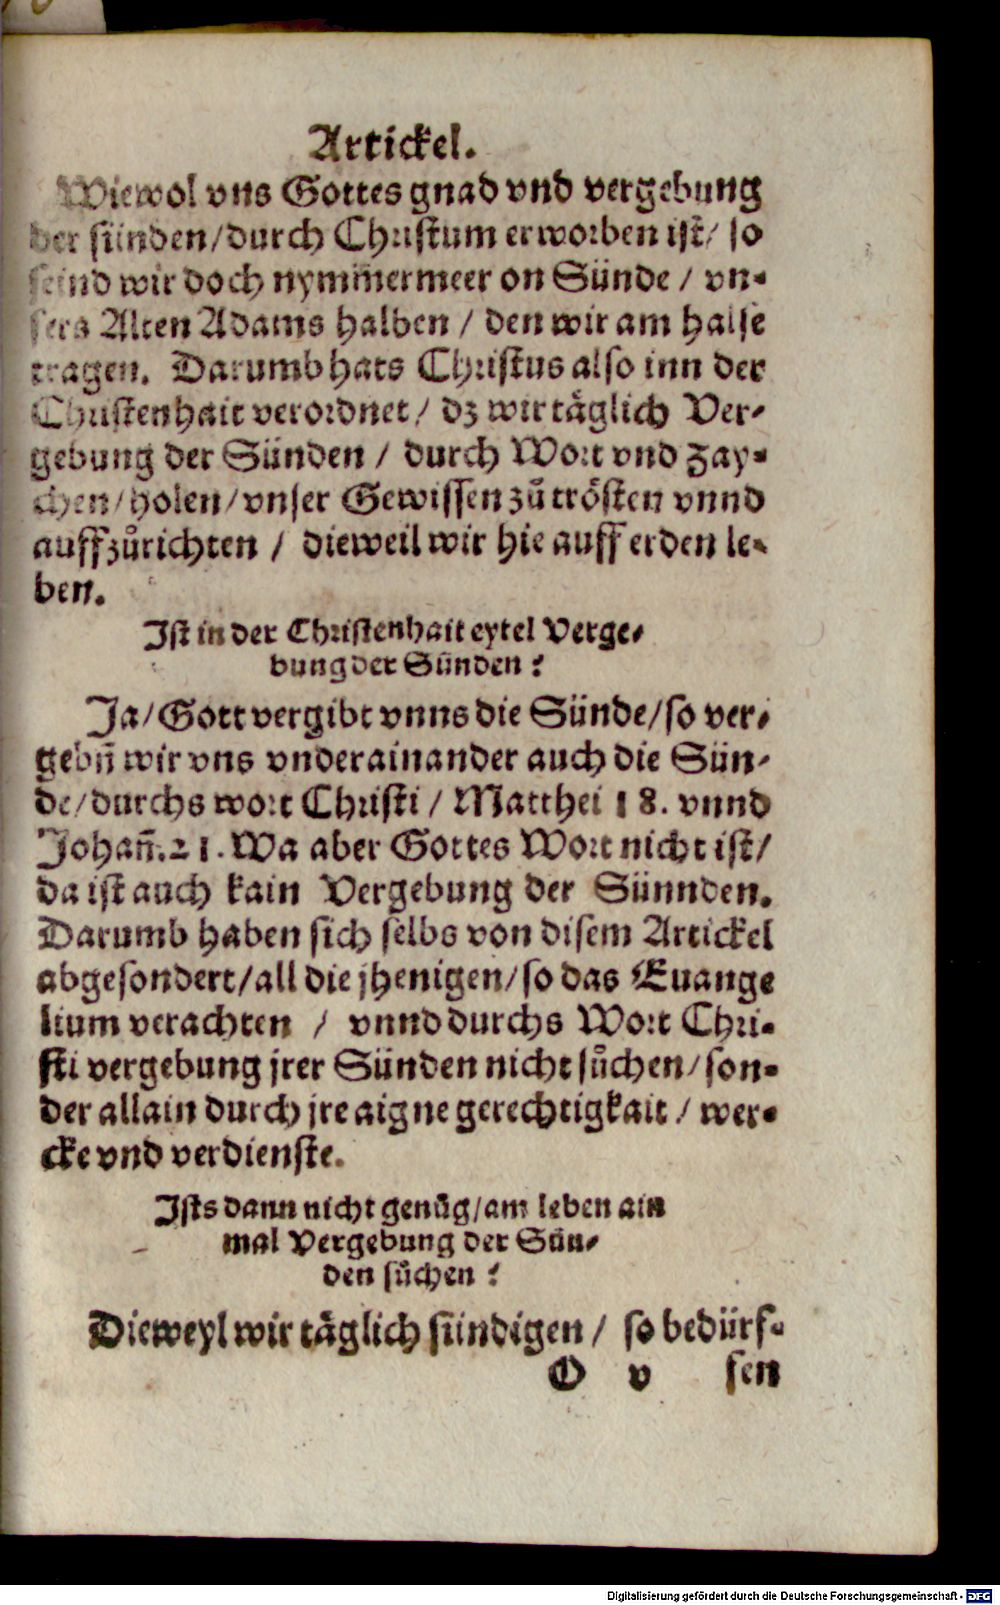 Artickel.
Wiewol vns Gottes gnad vnd vergebung
der sünden/durch Christum erworben ist/ so
seind wir doch nym̃ermeer on Sünde / vn-
sers Alten Adams halben / den wir am halse
tragen. Darumb hats Christus also inn der
Christenhait verordnet/ dz wir täglich Ver-
gebung der Sünden / durch Wort vnd zay-
chen/holen/vnser Gewissen zů trösten vnnd
auffzůrichten / dieweil wir hie auff erden le-
ben.
Ist in der Christenhait eytel Verge-
bung der Sünden?
Ja/Gott vergibt vnns die Sünde/so ver-
gebñ wir vns vnderainander auch die Sün-
de/durchs wort Christi / Matthei 18. vnnd
Johañ.21. Wa aber Gottes Wort nicht ist/
da ist auch kain Vergebung der Sünnden.
Darumb haben sich selbs von disem Artickel
abgesondert/all die jhenigen/so das Euange
lium verachten / vnnd durchs Wort Chri-
sti vergebung jrer Sünden nicht sůchen/son-
der allain durch jre aigne gerechtigkait / wer-
cke vnd verdienste.
Ists dann nicht genůg/am leben ain
mal Vergebung der Sün-
den sůchen?
Dieweyl wir täglich sündigen / so bedürf-
O v fen
Digitalisierung gefördert durch die Deutsche Forschungsgemeinschaft - DFG